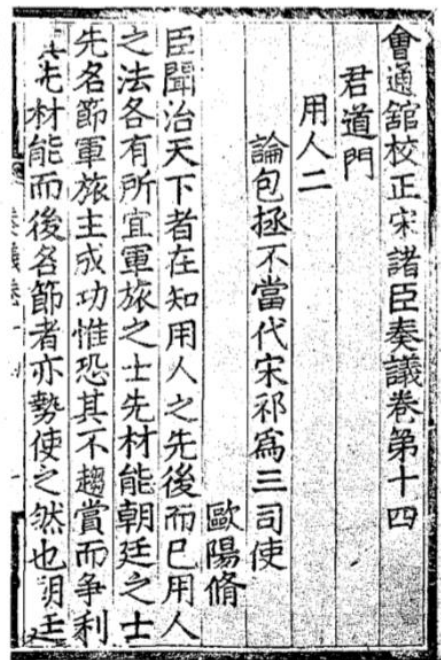 會通舘校正宋諸臣奏議卷第十四
君道門
用人二
論包拯不當代宋祁爲三司使
歐陽脩
臣聞治天下者在知用人之先後而已用人
之法各有所宜軍旅之士先材能朝廷之士
先名節軍旅主成功惟恐其不趨賞而争利
其先材能而後名節者亦勢使之然也朝廷